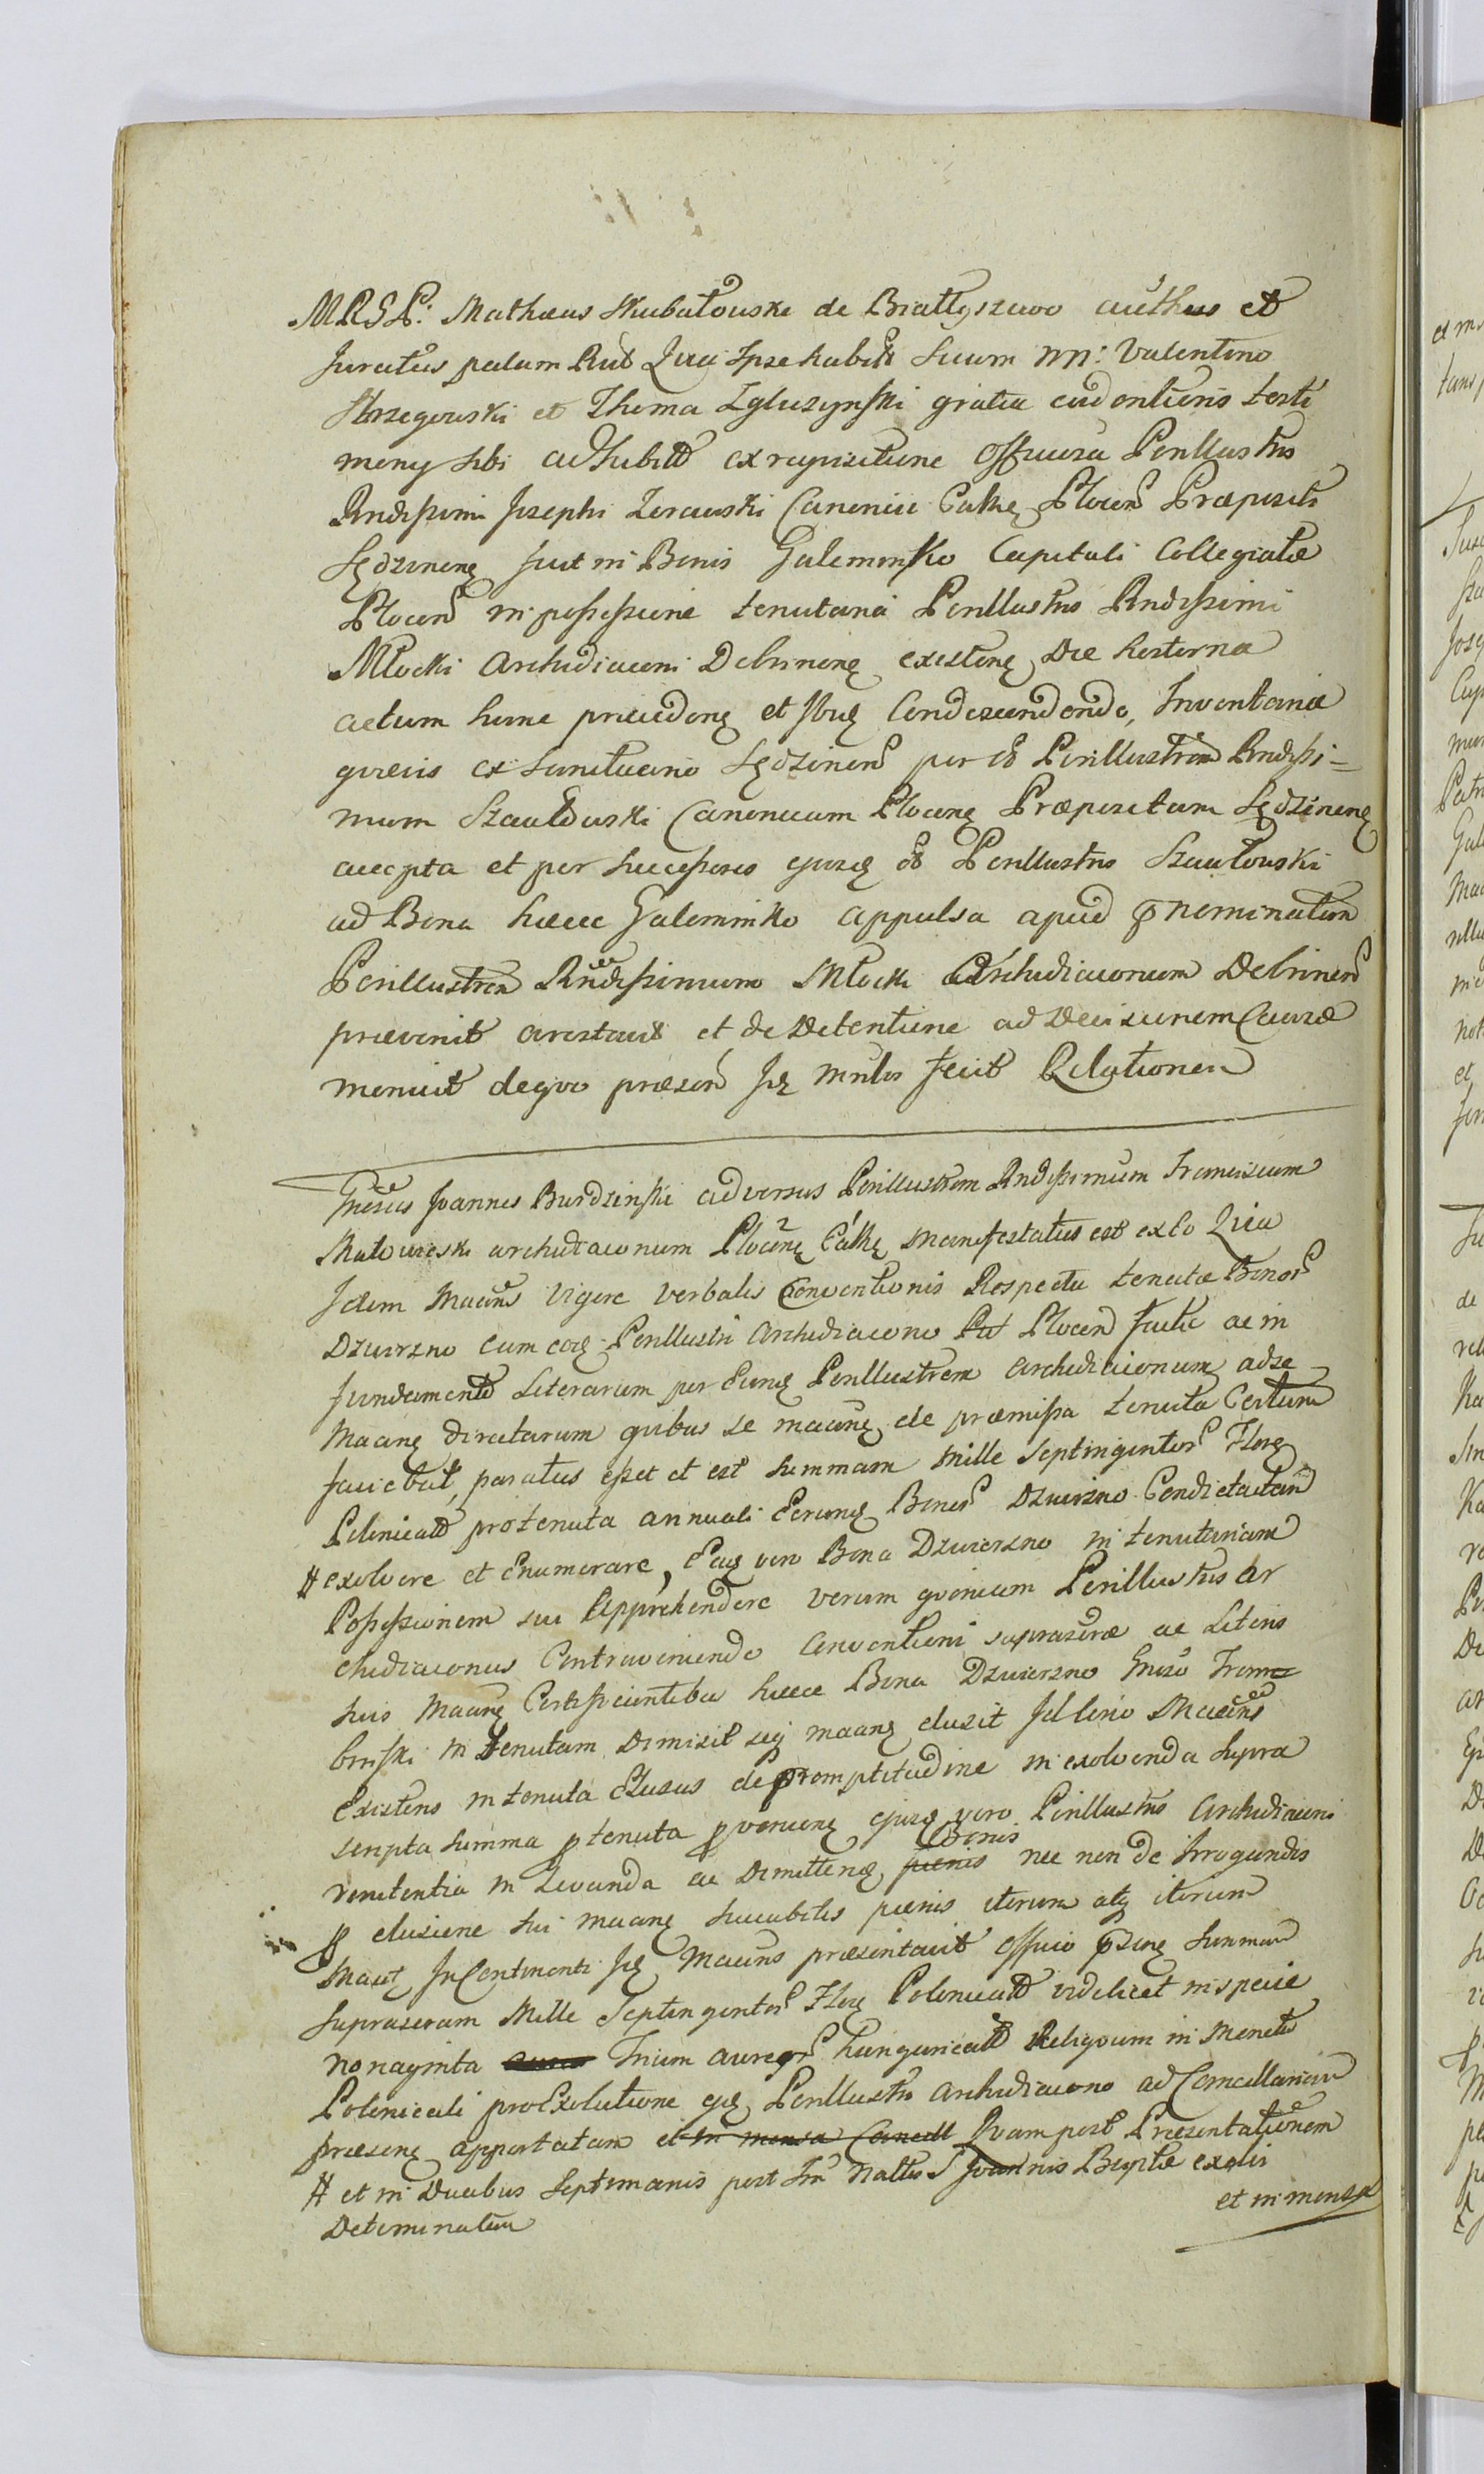 MRSP: Mathæus Skubatowski de Białłyszewo auth us et
Juratus palam Rut Quia Ipse habitt Secum nn: Valentino
et Thoma gratia evidentioris testi
monij sibi adhibitt ex requisitione Officiosa Perillustris
Rndissimi Josephi Zorawski Canonici Cathe Plocen Præpositi
Sędzinen fuit in Bonis Galeminko Capituli Collegiatæ
Plocen in possessione tenutaria Perillustris Rndissimi
Młocki Archidiaconi Dobrinene existene Die hesterna
actum hunc præcedene et Ibiq Condescendendo, Inventaria
grævis ex Sędzinen per Perillustrem Rndissi=
mum Szcautowski Canonicum Plocene Præpositum Sędzinene
accepta et per Successores ejusq Perillustris Szcautowski
ad Bona hæcce Galeminko appulsa apud pnominatum
Perillustrem Rndissimum Młocki Archidiaconum Dobrinen
prævenit arestavit et de Detentione ad Decisionem Causæ
monuit de quo præsen Jq mnlr fecit Relationem
Gnosus Joannes Burdzinski adversus Perillustrem Rndissimum Franciscum
Matowieski archidiaconum Plocene Cathe Manifestatus est ex eo Quia
Idem Maans Vigore Verbalis Conventionis Respectu tenutæ Bonor
Dzwierzno cum eoq Perillustri Archidiacono Plocen factæ ac in
fundamento Literarum per Eunq Perillustrem archidiaconum ad se
Maanq directarum quibus se maanq de præmissa tenuta Certum
faciebat, paratus esset et est Summam Mille Septingentor Flor
Polonicalt pro tenuta annuali Eorunq Bonor Dzwierzno Condictatam
# exolvere et Enumerare, Eaq vero Bona Dzwierzno in tenutariam
Possessionem sui Apprehendere verum quoniam Perillustris Ar
chidiaconus Contraveniendo Conventioni suprascræ ac Literis
suis Maanq Certificantibus hæcce Bona Dzwierzno Gnoso Tram
binski in Tenutam Dimisit seq maanq elusit Id Circo Maans
Existens in tenuta Elusus de promptitudine in exolvenda Supra
scripta Summa p tenuta pveniene ejusq vero Perillustris Archidiaconi
renitentia in Levanda ac Dimittene Bonis nec non de Irrogandis
p elusione sui maanq Succubitis pænis iterum atq iterum
Maat Incontinenti Jq Maans præsentavit Officio pseng Summam
Suprascram Mille Septingentor Flor Polonicalt videlicet in specie
nonaginta Trium aureor hungaricalt Reliquum in Moneta
Polonicali pro Exolutione ejq Perillustri Archidiacono ad Cancellariam
præsene apportatam et in mensa Cancell Quam post Præsentationem
# et in Duabus Septimanis post Fm Naltis S Joannis Bapttæ exolvi
et in mensa
Determinatam